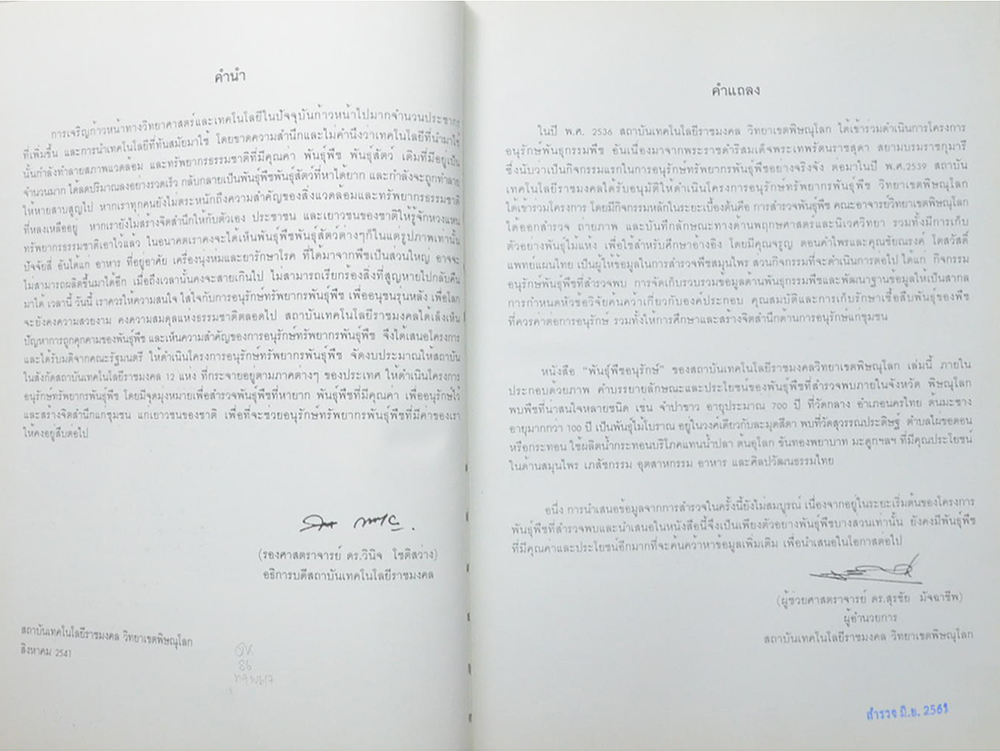 คำนำ
การเจริญก้าวหน้าทางวิทยาศาสตร์และเทคโนโลยีในปัจจุบันก้าวหน้าไปมากจำนวนประชากร
ที่เพิ่มขึ้น และการนำเทคโนโลยีที่ทันสมัยมาใช้ โดยขาดความสำนึกและไม่คำนึงว่าเทคโนโลยีที่นำมาใช้
นั้นกำลังทำลายสภาพแวดล้อม และทรัพยากรธรรมชาติที่มีคุณค่า พันธุ์พืช พันธุ์สัตว์ เดิมที่มีอยู่เป็น
จำนวนมาก ได้ลดปริมาณลงอย่างรวดเร็ว กลับกลายเป็นพันธุ์พืชพันธุ์สัตว์ที่หาได้ยาก และกำลังจะถูกทำลาย
ให้หายสาบสูญไป หากเราทุกคนยังไม่ตระหนักถึงความสำคัญของสิ่งแวดล้อมและทรัพยากรธรรมชาติ
ที่หลงเหลืออยู่ หากเรายังไม่สร้างจิตสำนึกให้กับตัวเอง ประชาชน และเยาวชนของชาติให้รู้จักหวงแหน
ทรัพยากรธรรมชาติเอาไว้แล้ว ในอนาคตเราคงจะได้เห็นพันธุ์พืชพันธุ์สัตว์ต่างๆก็ในแต่รูปภาพเท่านั้น
ปัจจัยสี่ อันได้แก่ อาหาร ที่อยู่อาศัย เครื่องนุ่งห่มและยารักษาโรค ที่ได้มาจากพืชเป็นส่วนใหญ่ อาจจะ
ไม่สามารถผลิตขึ้นมาได้อีก เมื่อถึงเวลานั้นคงจะสายเกินไป ไม่สามารถเรียกร้องสิ่งที่สูญหายไปกลับคืน
มาได้ เวลานี้ วันนี้ เราควรให้ความสนใจ ใส่ใจกับการอนุรักษ์ทรัพยากรพันธุ์พืช เพื่ออนุชนรุ่นหลัง เพื่อโลก
จะยังคงความสวยงาม คงความสมดุลแห่งธรรมชาติตลอดไป สถาบันเทคโนโลยีราชมงคลได้เล็งเห็น
ปัญหาการถูกคุกคามของพันธุ์พืช และเห็นความสำคัญของการอนุรักษ์ทรัพยากรพันธุ์พืช จึงได้เสนอโครงการ
และได้รับมติจากคณะรัฐมนตรี ให้ดำเนินโครงการอนุรักษ์ทรัพยากรพันธุ์พืช จัดงบประมาณให้สถาบัน
ในสังกัดสถาบันเทคโนโลยีราชมงคล 12 แห่ง ที่กระจายอยู่ตามภาคต่างๆ ของประเทศ ให้ดำเนินโครงการ
อนุรักษ์ทรัพยากรพันธุ์พืช โดยมีจุดมุ่งหมายเพื่อสำรวจพันธุ์พืชที่หายาก พันธุ์พืชที่มีคุณค่า เพื่ออนุรักษ์ไว้
และสร้างจิตสำนึกแก่ชุมชน แก่เยาวชนของชาติ เพื่อที่จะช่วยอนุรักษ์ทรัพยากรพันธุ์พืชที่มีค่าของเรา
ให้คงอยู่สืบต่อไป
(รองศาสตราจารย์ ดร.วินิจ โชติสว่าง)
อธิการบดีสถาบันเทคโนโลยีราชมงคล
สถาบันเทคโนโลยีราชมงคล วิทยาเขตพิษณุโลก
สิงหาคม 2541
คำแถลง
ในปี พ.ศ. 2536 สถาบันเทคโนโลยีราชมงคล วิทยาเขตพิษณุโลก ได้เข้าร่วมดำเนินการโครงการ
อนุรักษ์พันธุกรรมพืช อันเนื่องมาจากพระราชดำริสมเด็จพระเทพรัตนราชสุดา สยามบรมราชกุมารี
ซึ่งนับว่าเป็นกิจกรรมแรกในการอนุรักษ์พันธุ์พืชอย่างจริงจัง ต่อมาในปี พ.ศ.2539 สถาบัน
เทคโนโลยีราชมงคลได้รับอนุมัติให้ดำเนินโครงการอนุรักษ์ทรัพยากรพันธุ์พืช วิทยาเขตพิษณุโลก
ได้เข้าร่วมโครงการ โดยมีกิจกรรมหลักในระยะเบื้องต้นคือ การสำรวจพันธุ์พืช คณะอาจารย์วิทยาเขตพิษณุโลก
ได้ออกสำรวจ ถ่ายภาพ และบันทึกลักษณะทางด้านพฤกษศาสตร์และนิเวศวิทยา รวมทั้งมีการเก็บ
ตัวอย่างพันธุ์ไม้แห้ง เพื่อใช้สำหรับศึกษาอ้างอิง โดยมีคุณจรูญ ดอนคำไพรและคุณชัยณรงค์ โตสวัสดิ์
แพทย์แผนไทย เป็นผู้ให้ข้อมูลในการสำรวจพืชสมุนไพร ส่วนกิจกรรมที่จะดำเนินการต่อไป ได้แก่ กิจกรรม
อนุรักษ์พันธุ์พืชที่สำรวจพบ การจัดเก็บรวบรวมข้อมูลด้านพันธุกรรมพืชและพัฒนาฐานข้อมูลให้เป็นสากล
การกำหนดหัวข้อวิจัยค้นคว้าเกี่ยวกับองค์ประกอบ คุณสมบัติและการเก็บรักษาเชื้อสืบพันธุ์ของพืช
ที่ควรค่าต่อการอนุรักษ์ รวมทั้งให้การศึกษาและสร้างจิตสำนึกด้านการอนุรักษ์แก่ชุมชน
หนังสือ "พันธุ์พืชอนุรักษ์" ของสถาบันเทคโนโลยีราชมงคลวิทยาเขตพิษณุโลก เล่มนี้ ภายใน
ประกอบด้วยภาพ คำบรรยายลักษณะและประโยชน์ของพันธุ์พืชที่สำรวจพบภายในจังหวัด พิษณุโลก
พบพืชที่น่าสนใจหลายชนิด เช่น จำปาขาว อายุประมาณ 700 ปี ที่วัดกลาง อำเภอนครไทย ต้นมะซาง
อายุมากกว่า 100 ปี เป็นพันธุ์ไม้โบราณ อยู่ในวงศ์เดียวกับละมุดสีดา พบที่วัดสุวรรณประดิษฐ์ ตำบลไผ่ขอดอน
หรือกระท่อน ใช้ผลิตน้ำกระท่อนบริโภคแทนน้ำปลา ต้นอุโลก ขันทองพยาบาท มะดูกฯลฯ ที่มีคุณประโยชน์
ในด้านสมุนไพร เภสัชกรรม อุตสาหกรรม อาหาร และศิลปวัฒนธรรมไทย
อนึ่ง การนำเสนอข้อมูลจากการสำรวจในครั้งนี้ยังไม่สมบูรณ์ เนื่องจากอยู่ในระยะเริ่มต้นของโครงการ
พันธุ์พืชที่สำรวจพบและนำเสนอในหนังสือนี้จึงเป็นเพียงตัวอย่างพันธุ์พืชบางส่วนเท่านั้น ยังคงมีพันธุ์พืช
ที่มีคุณค่าและประโยชน์อีกมากที่จะค้นคว้าหาข้อมูลเพิ่มเติม เพื่อนำเสนอในโอกาสต่อไป
(ผู้ช่วยศาสตราจารย์ ดร.สุรชัย มัจฉาชีพ)
ผู้อำนวยการ
สถาบันเทคโนโลยีราชมงคล วิทยาเขตพิษณุโลก
สำรวจ มิ.ย. 2561